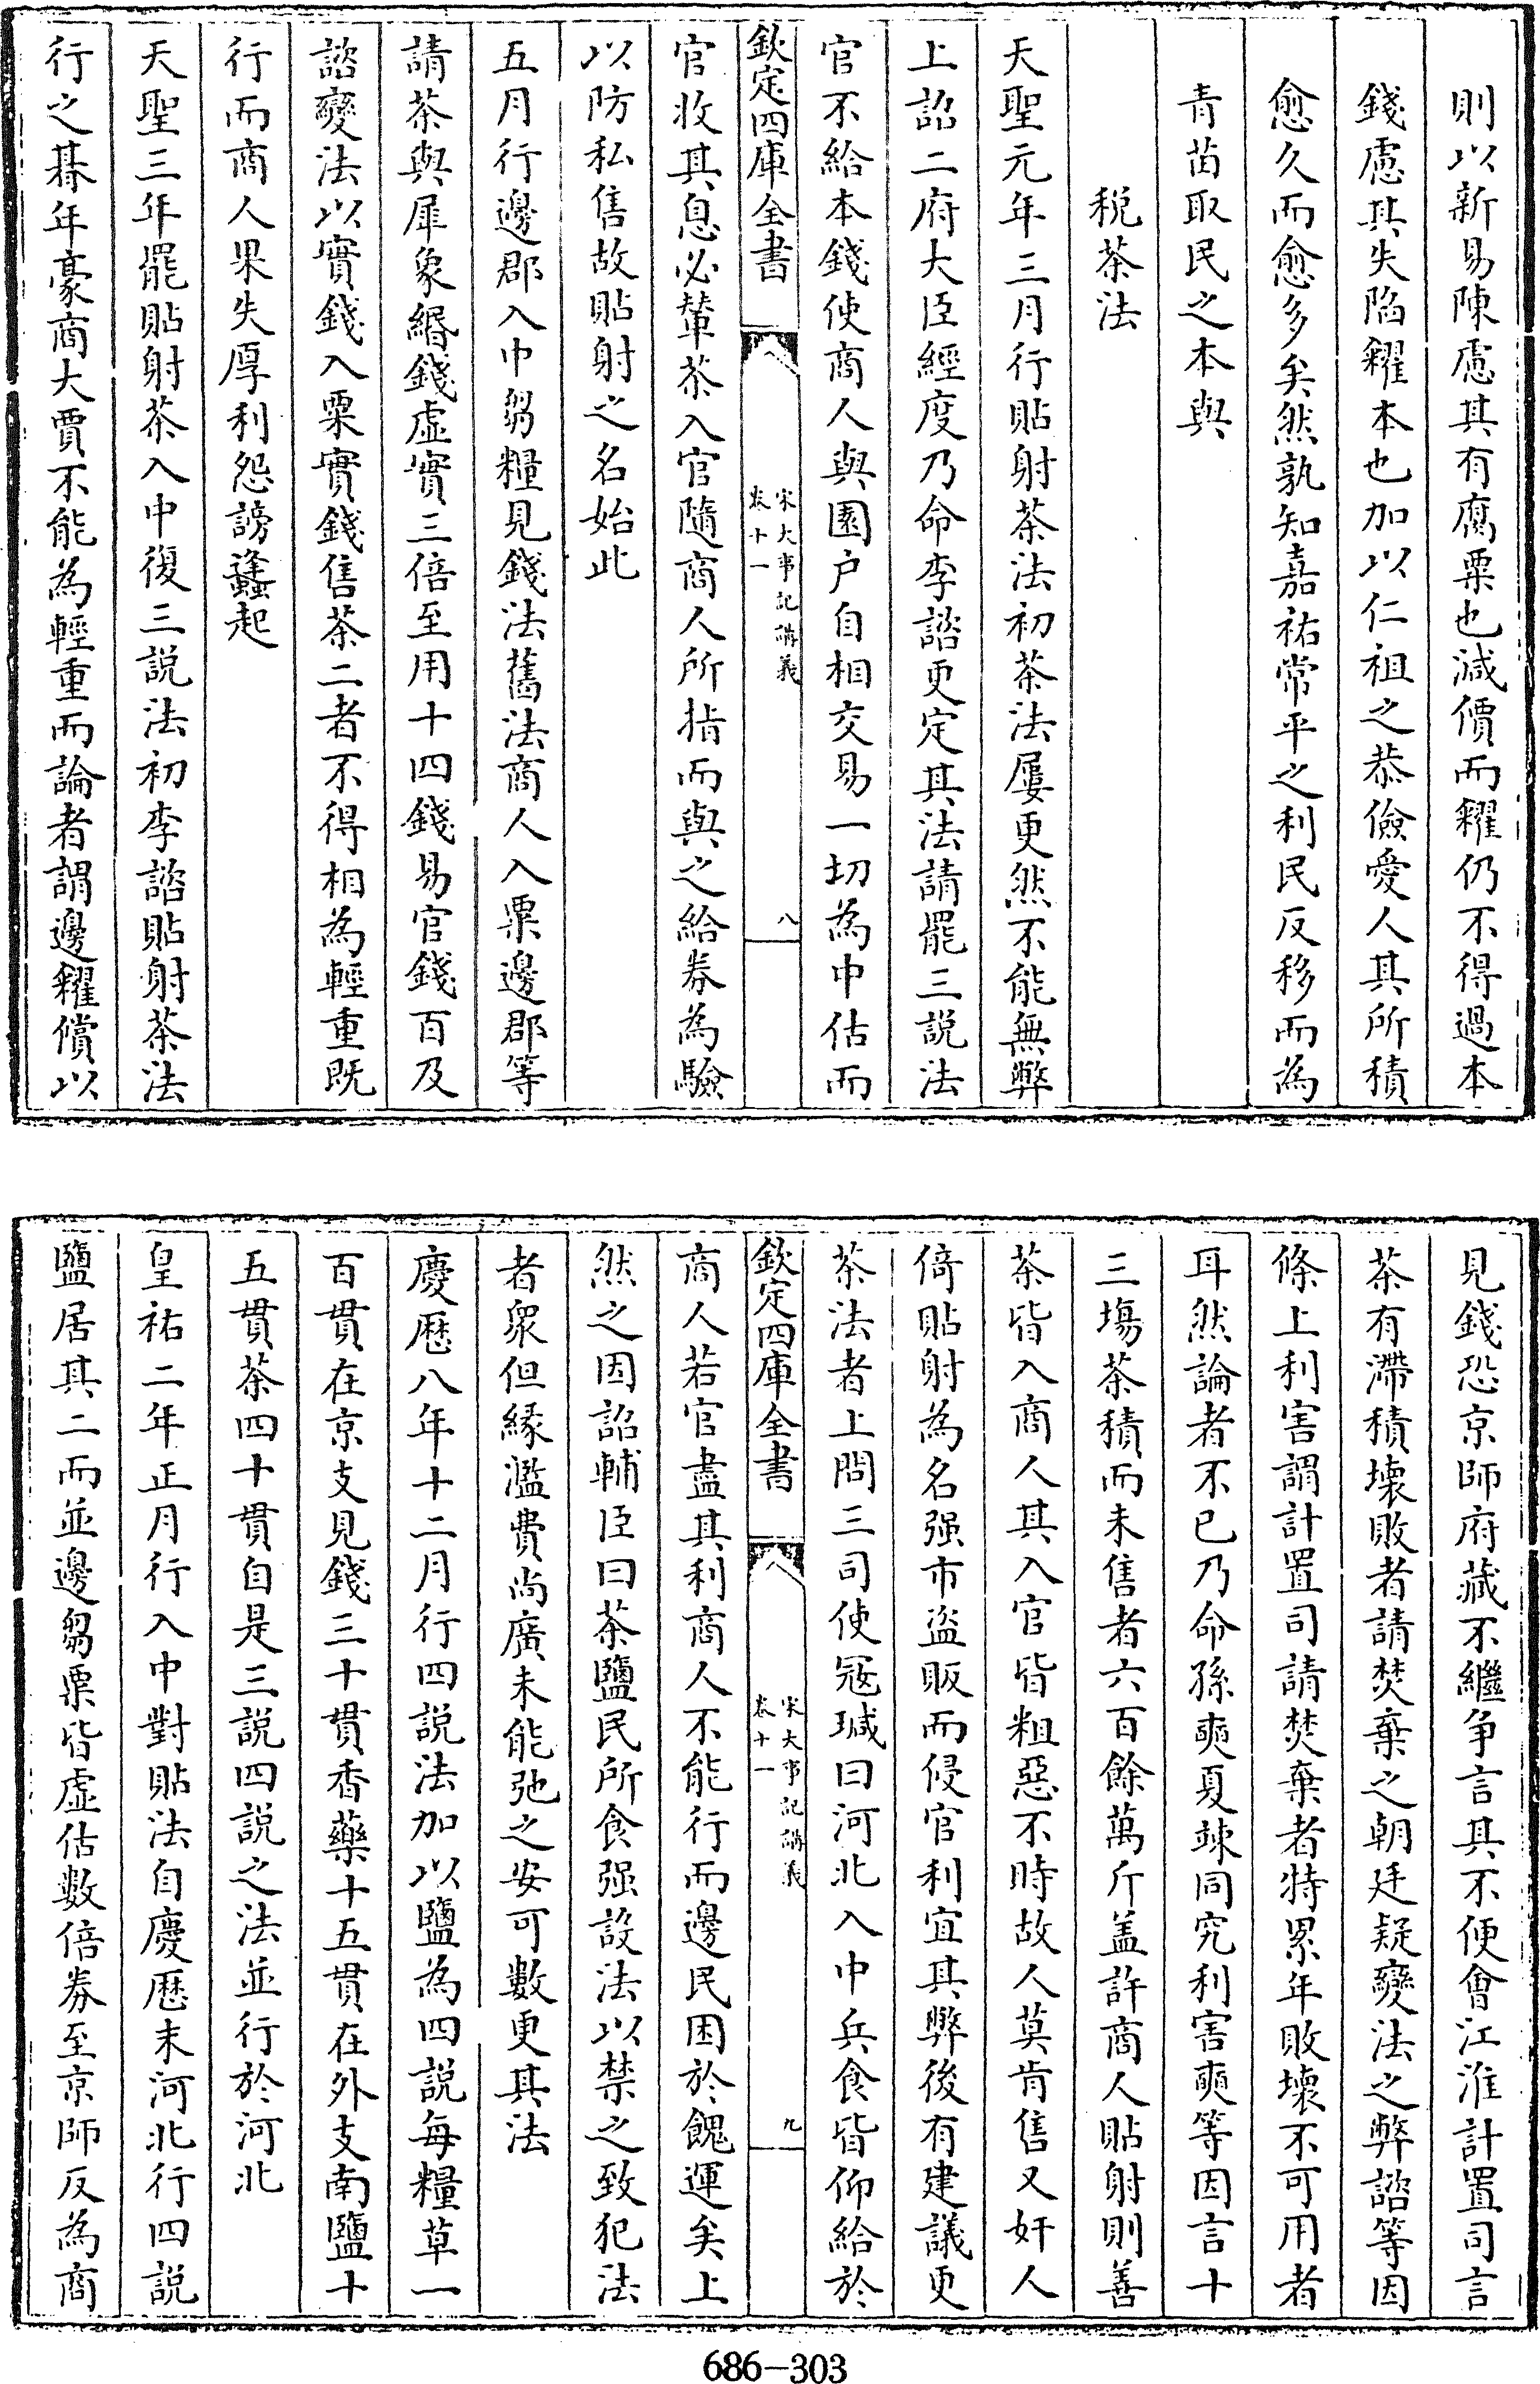 則以新易陳慮其有腐粟也減價而糴仍不得過本
錢慮其失陷糴本也加以仁祖之恭儉愛人其所積
愈久而愈多矣然孰知嘉祐常平之利民反移而為
青苗取民之本與
税茶法
天聖元年三月行貼射茶法初茶法屢更然不能無弊
上詔二府大臣經度乃命李諮更定其法請罷三説法
官不給本錢使商人與園户自相交易一切為中估而
欽定四庫全書
宋大事記講義
卷十一
八
官收其息必輦茶入官隨商人所指而與之給券為驗
以防私售故貼射之名始此
五月行邊郡入中芻糧見錢法舊法商人入粟邊郡等
請茶與犀象緡錢虚實三倍至用十四錢易官錢百及
諮變法以實錢入粟實錢售茶二者不得相為輕重既
行而商人果失厚利怨謗蠭起
天聖三年罷貼射茶入中復三説法初李諮貼射茶法
行之朞年豪商大賈不能為輕重而論者謂邊糴償以
見錢恐京師府藏不繼争言其不便會江淮計置司言
茶有滯積壊敗者請焚棄之朝廷疑變法之弊諮等因
條上利害謂計置司請焚棄者特累年敗壊不可用者
耳然論者不已乃命孫奭夏竦同究利害奭等因言十
三場茶積而未售者六百餘萬斤盖許商人貼射則善
茶皆入商人其入官皆粗惡不時故人莫肯售又奸人
倚貼射為名强市盗販而侵官利宜其弊後有建議更
茶法者上問三司使冦瑊曰河北入中兵食皆仰給於
欽定四庫全書
宋大事記講義
卷十一
九
商人若官盡其利商人不能行而邊民困於餽運矣上
然之因詔輔臣曰茶鹽民所食强設法以禁之致犯法
者衆但縁濫費尚廣未能弛之安可數更其法
慶厯八年十二月行四説法加以鹽為四説每糧草一
百貫在京支見錢三十貫香藥十五貫在外支南鹽十
五貫茶四十貫自是三説四説之法並行於河北
皇祐二年正月行入中對貼法自慶厯末河北行四説
鹽居其二而並邊芻粟皆虚估數倍券至京師反為商
686-303